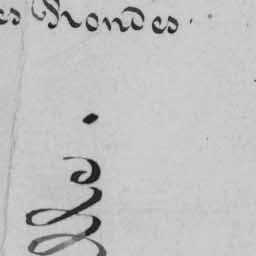 es Rondes